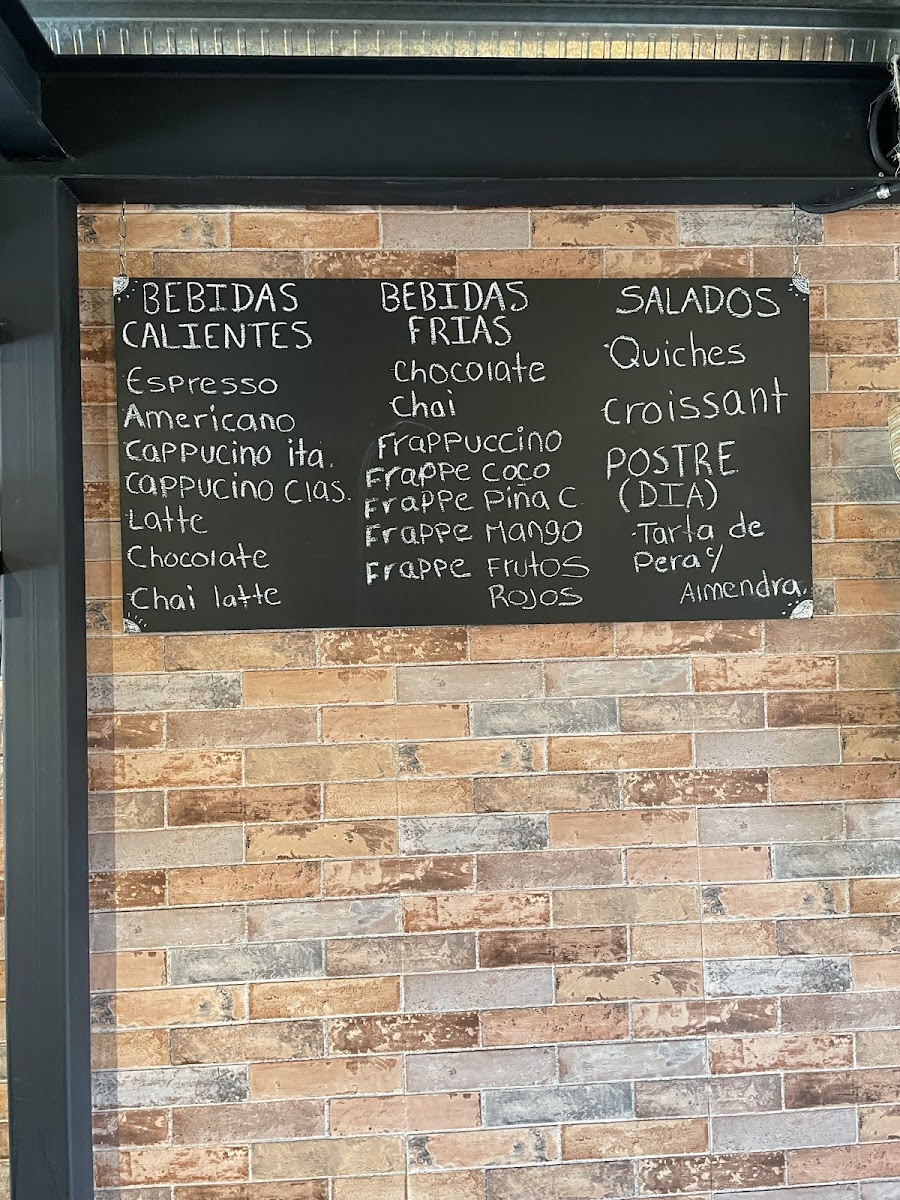 BEBIDAS
CALIENTES
Espresso
Americano
Cappucino ita.
Cappucino Clas.
Latte
Chocolate
Chai latte
BEBIDAS
FRIAS
Chocolate
Chai
Frappuccino
Frappe Coco
Frappe Piña C.
Frappe Mango
Frappe Frutos
Rojos
SALADOS
Quiches
Croissant
POSTRE
(DIA)
Tarta de
Pera y
Almendra